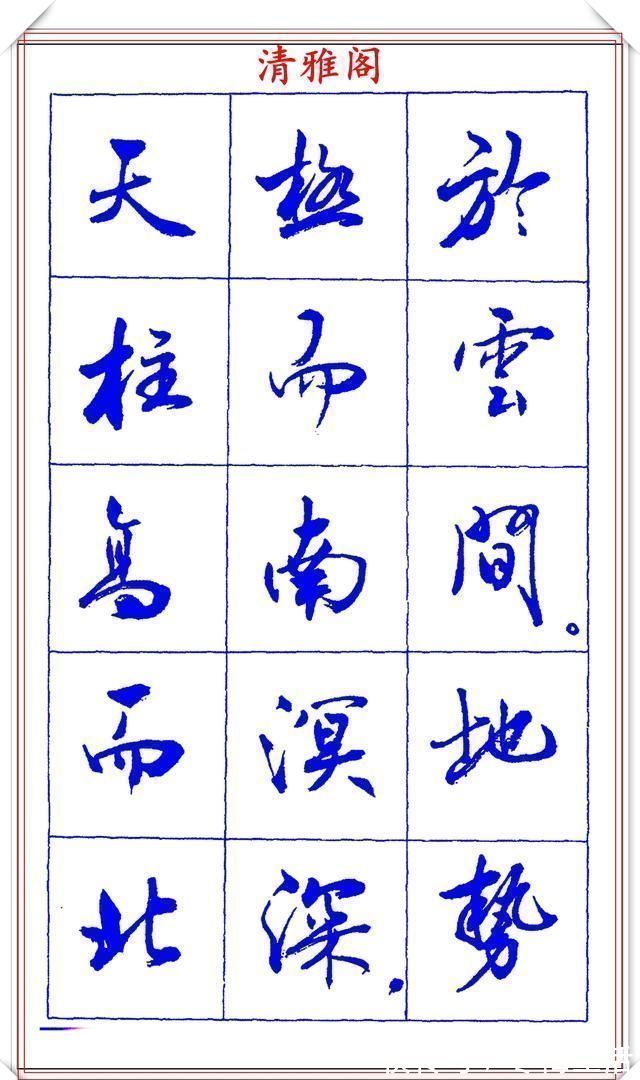 清雅阁
於雲間。地勢
極而南溟深,
天柱高而北